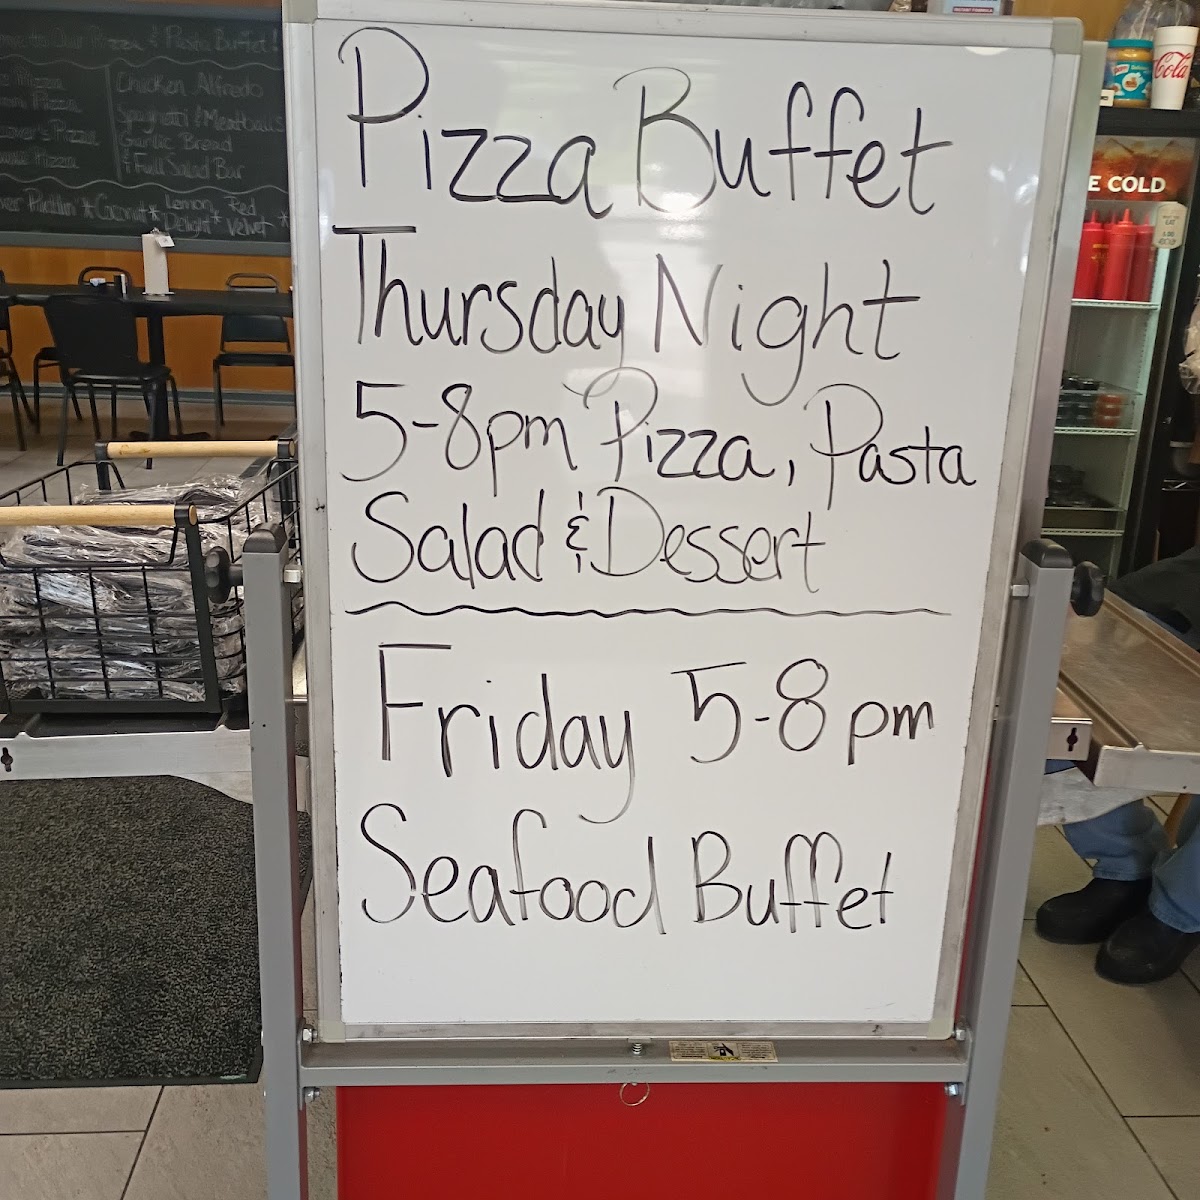 Pizza Buffet
Thursday Night
5-8pm Pizza, Pasta
Salad & Dessert
Friday 5-8pm
Seafood Buffet
Our Pizza & Pasta Buffet!
Pizza
Pizza
Pizza
Pizza
Chicken Alfredo
Spaghetti & Meatballs
Garlic Bread
+ Full Salad Bar
Lemon Delight * Red Velvet *
E COLD
Cola